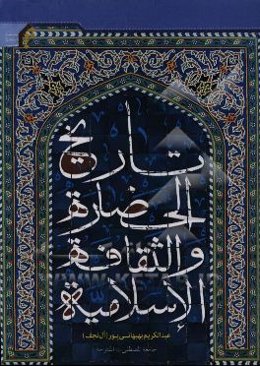 تاريخ
الحضارة
والثقافة
الإسلامية
عبدالكريم بهبهاني پور (آل نجف)